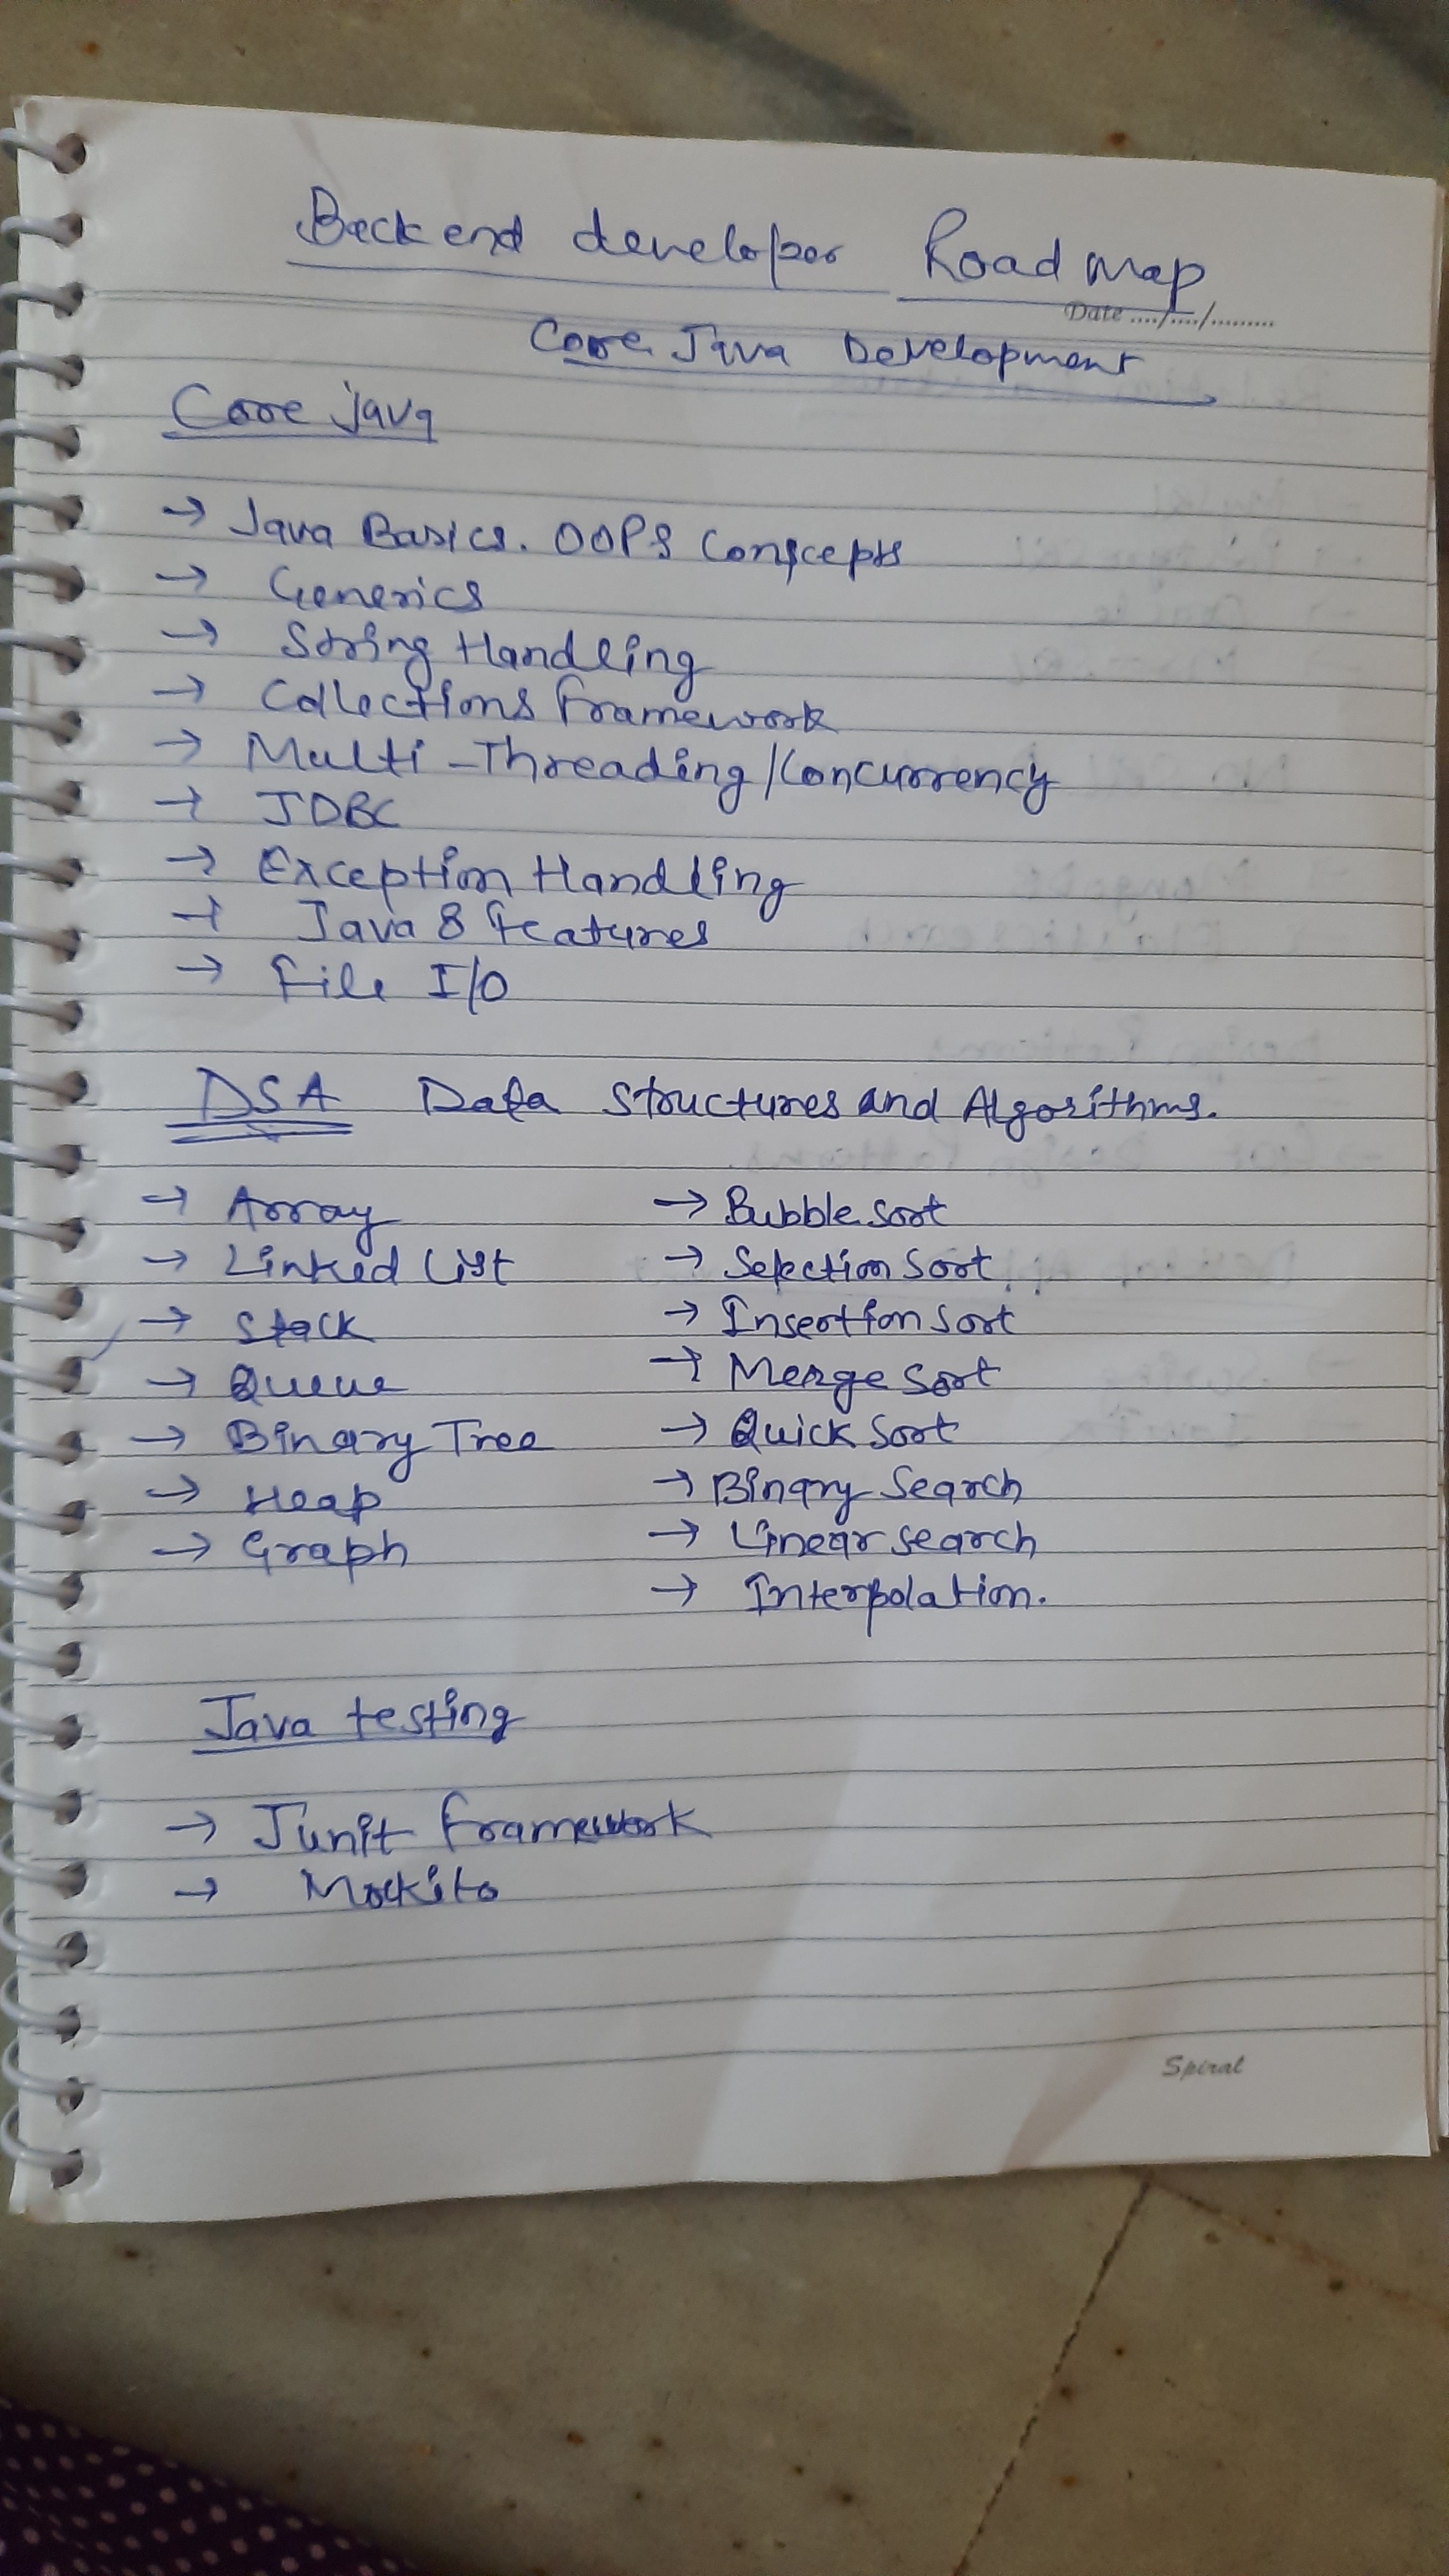 Backend developer Road map
Date ..../..../.........
Core Java Development
Core java
→ Java Basics. OOPS Conscepts
→ Generics
→ String Handling
→ Collections framework
→ Multi-Threading/Concurrency
→ JDBC
→ Exception Handling
→ Java 8 features
→ File I/O
DSA Data Structures and Algorithms.
→ Array → Bubble sort
→ Linked List → Selection Sort
→ Stack → Insertion Sort
→ Queue → Merge Sort
→ Binary Tree → Quick Sort
→ Heap → Binary Search
→ Graph → Linear search
→ Interpolation.
Java testing
→ Junit framework
→ Mockito
Spiral